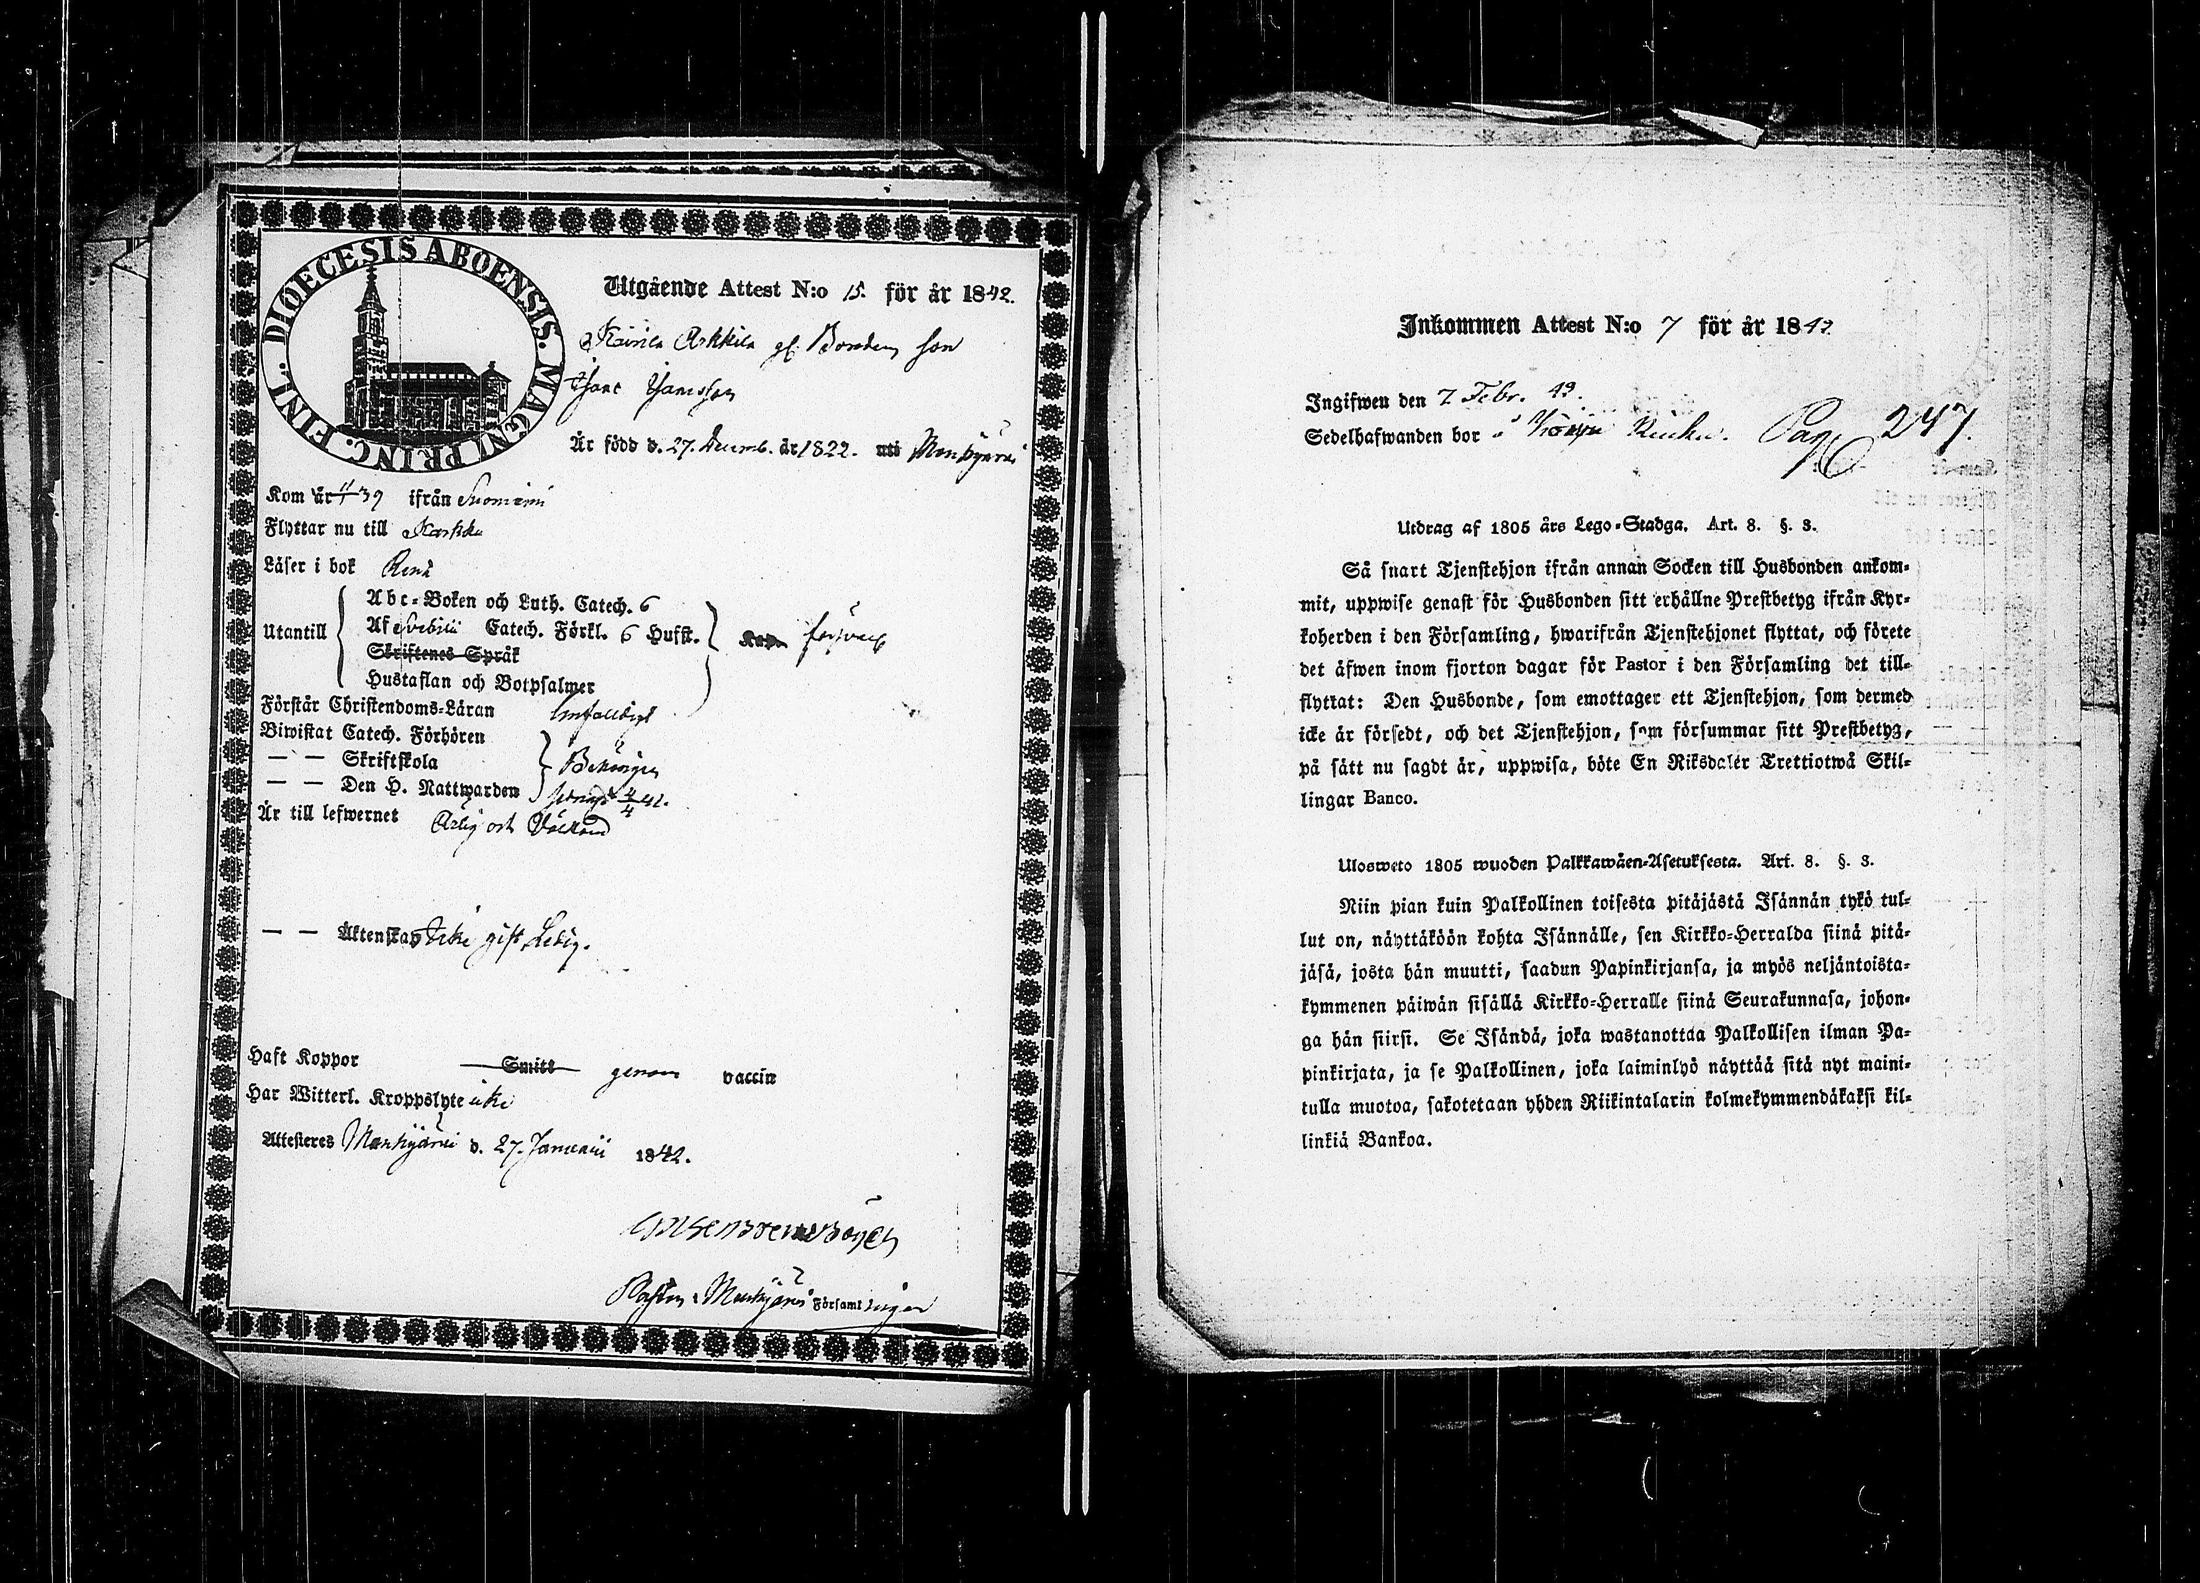 DIOECESIS ABOENSIS. MAGNI PRINC. FINL.
Utgående Attest N:o 15. för år 1842.
Bonden son
Är född d. 27. Decemb. år 1822. uti Mouhijärvi
Kom år 39 ifrån Suomiemi
Flyttar nu till Karkku
Läser i bok Rent
Utantill
Abc-Boken och Luth. Catech. 6
Af Svebilii Catech. Förkl. 6 Hufst.
Skriftenes Språk
Hustaflan och Botpsalmer
försvarl
Förstår Christendoms-Läran Enfalldigt
Biwistat Catech. Förhören
— — Skriftskola Behörigen
— — Den H. Nattwarden 42.
Är till lefwernet Ärlig och
— — Äktenskap Icke gift, Ledig.
Haft Koppor Smitt genom vaccin
Har Witterl. Kroppslyte icke
Attesteres Mouhijärvi d. 27. Januarii 1842.
Pastor i Mouhijärvi Församlingar
Inkommen Attest N:o 7 för år 1842
Ingifwen den 7 Febr. 42.
Sedelhafwanden bor Pag 247.
Utdrag af 1805 års Lego-Stadga. Art. 8. §. 3.
Så snart Tjenstehjon ifrån annan Socken till Husbonden ankom-
mit, uppwise genast för Husbonden sitt erhållne Prestbetyg ifrån Kyr-
koherden i den Församling, hwarifrån Tjenstehjonet flyttat, och förete
det äfwen inom fjorton dagar för Pastor i den Församling det till-
flyttat: Den Husbonde, som emottager ett Tjenstehjon, som dermed
icke är försedt, och det Tjenstehjon, som försummar sitt Prestbetyg,
på sätt nu sagdt är, uppwisa, böte En Riksdaler Trettiotwå Skil-
lingar Banco.
Ulosweto 1805 wuoden Palkkawäen-Asetuksesta. Art. 8. §. 3.
Niin pian kuin Palkollinen toisesta pitäjästä Isännän tykö tul-
lut on, näyttäköön kohta Isännälle, sen Kirkko-Herralda siinä pitä-
jäsä, josta hän muutti, saadun Papinkirjansa, ja myös neljäntoista-
kymmenen päiwän sisällä Kirkko-Herralle siinä Seurakunnasa, johon-
ga hän siirsi. Se Isändä, joka wastanottaa Palkollisen ilman Pa-
pinkirjata, ja se Palkollinen, joka laiminlyö näyttää sitä nyt maini-
tulla muotoa, sakotetaan yhden Riikintalarin kolmekymmendäkaksi kil-
linkiä Bankoa.